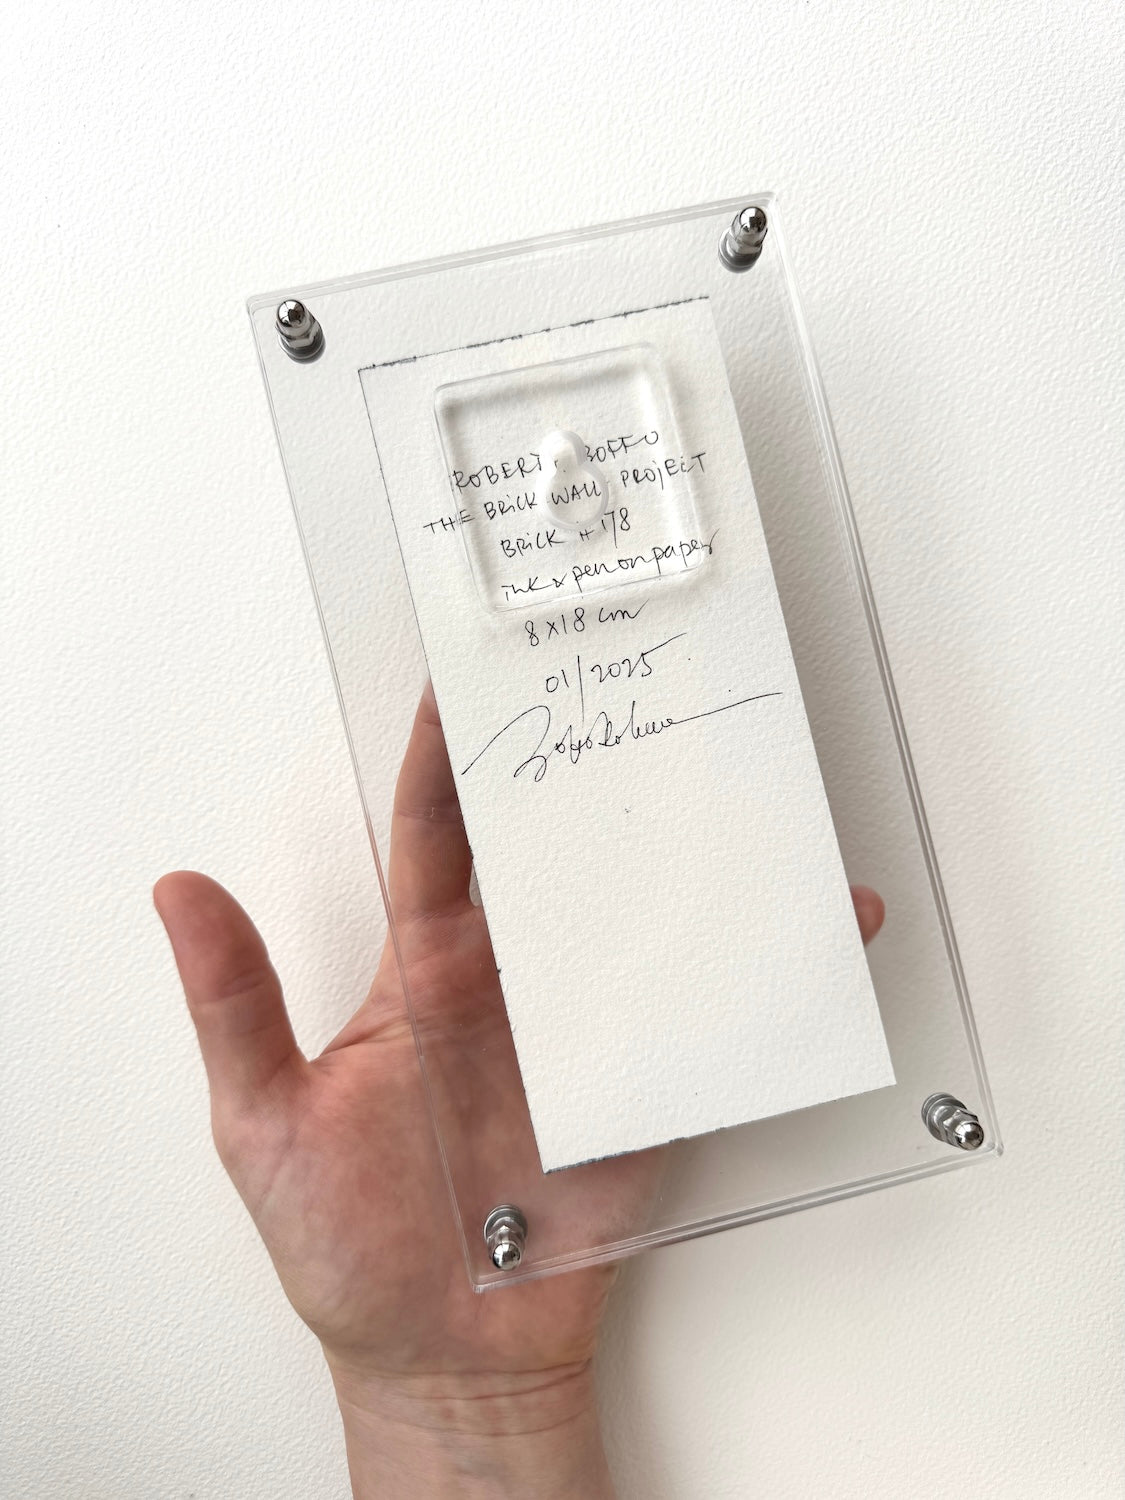 ROBERTA BOFFO
THE BRiCK WALL PROjECT
BRiCK #178
ink & pen on paper
8x18 cm
01/2025